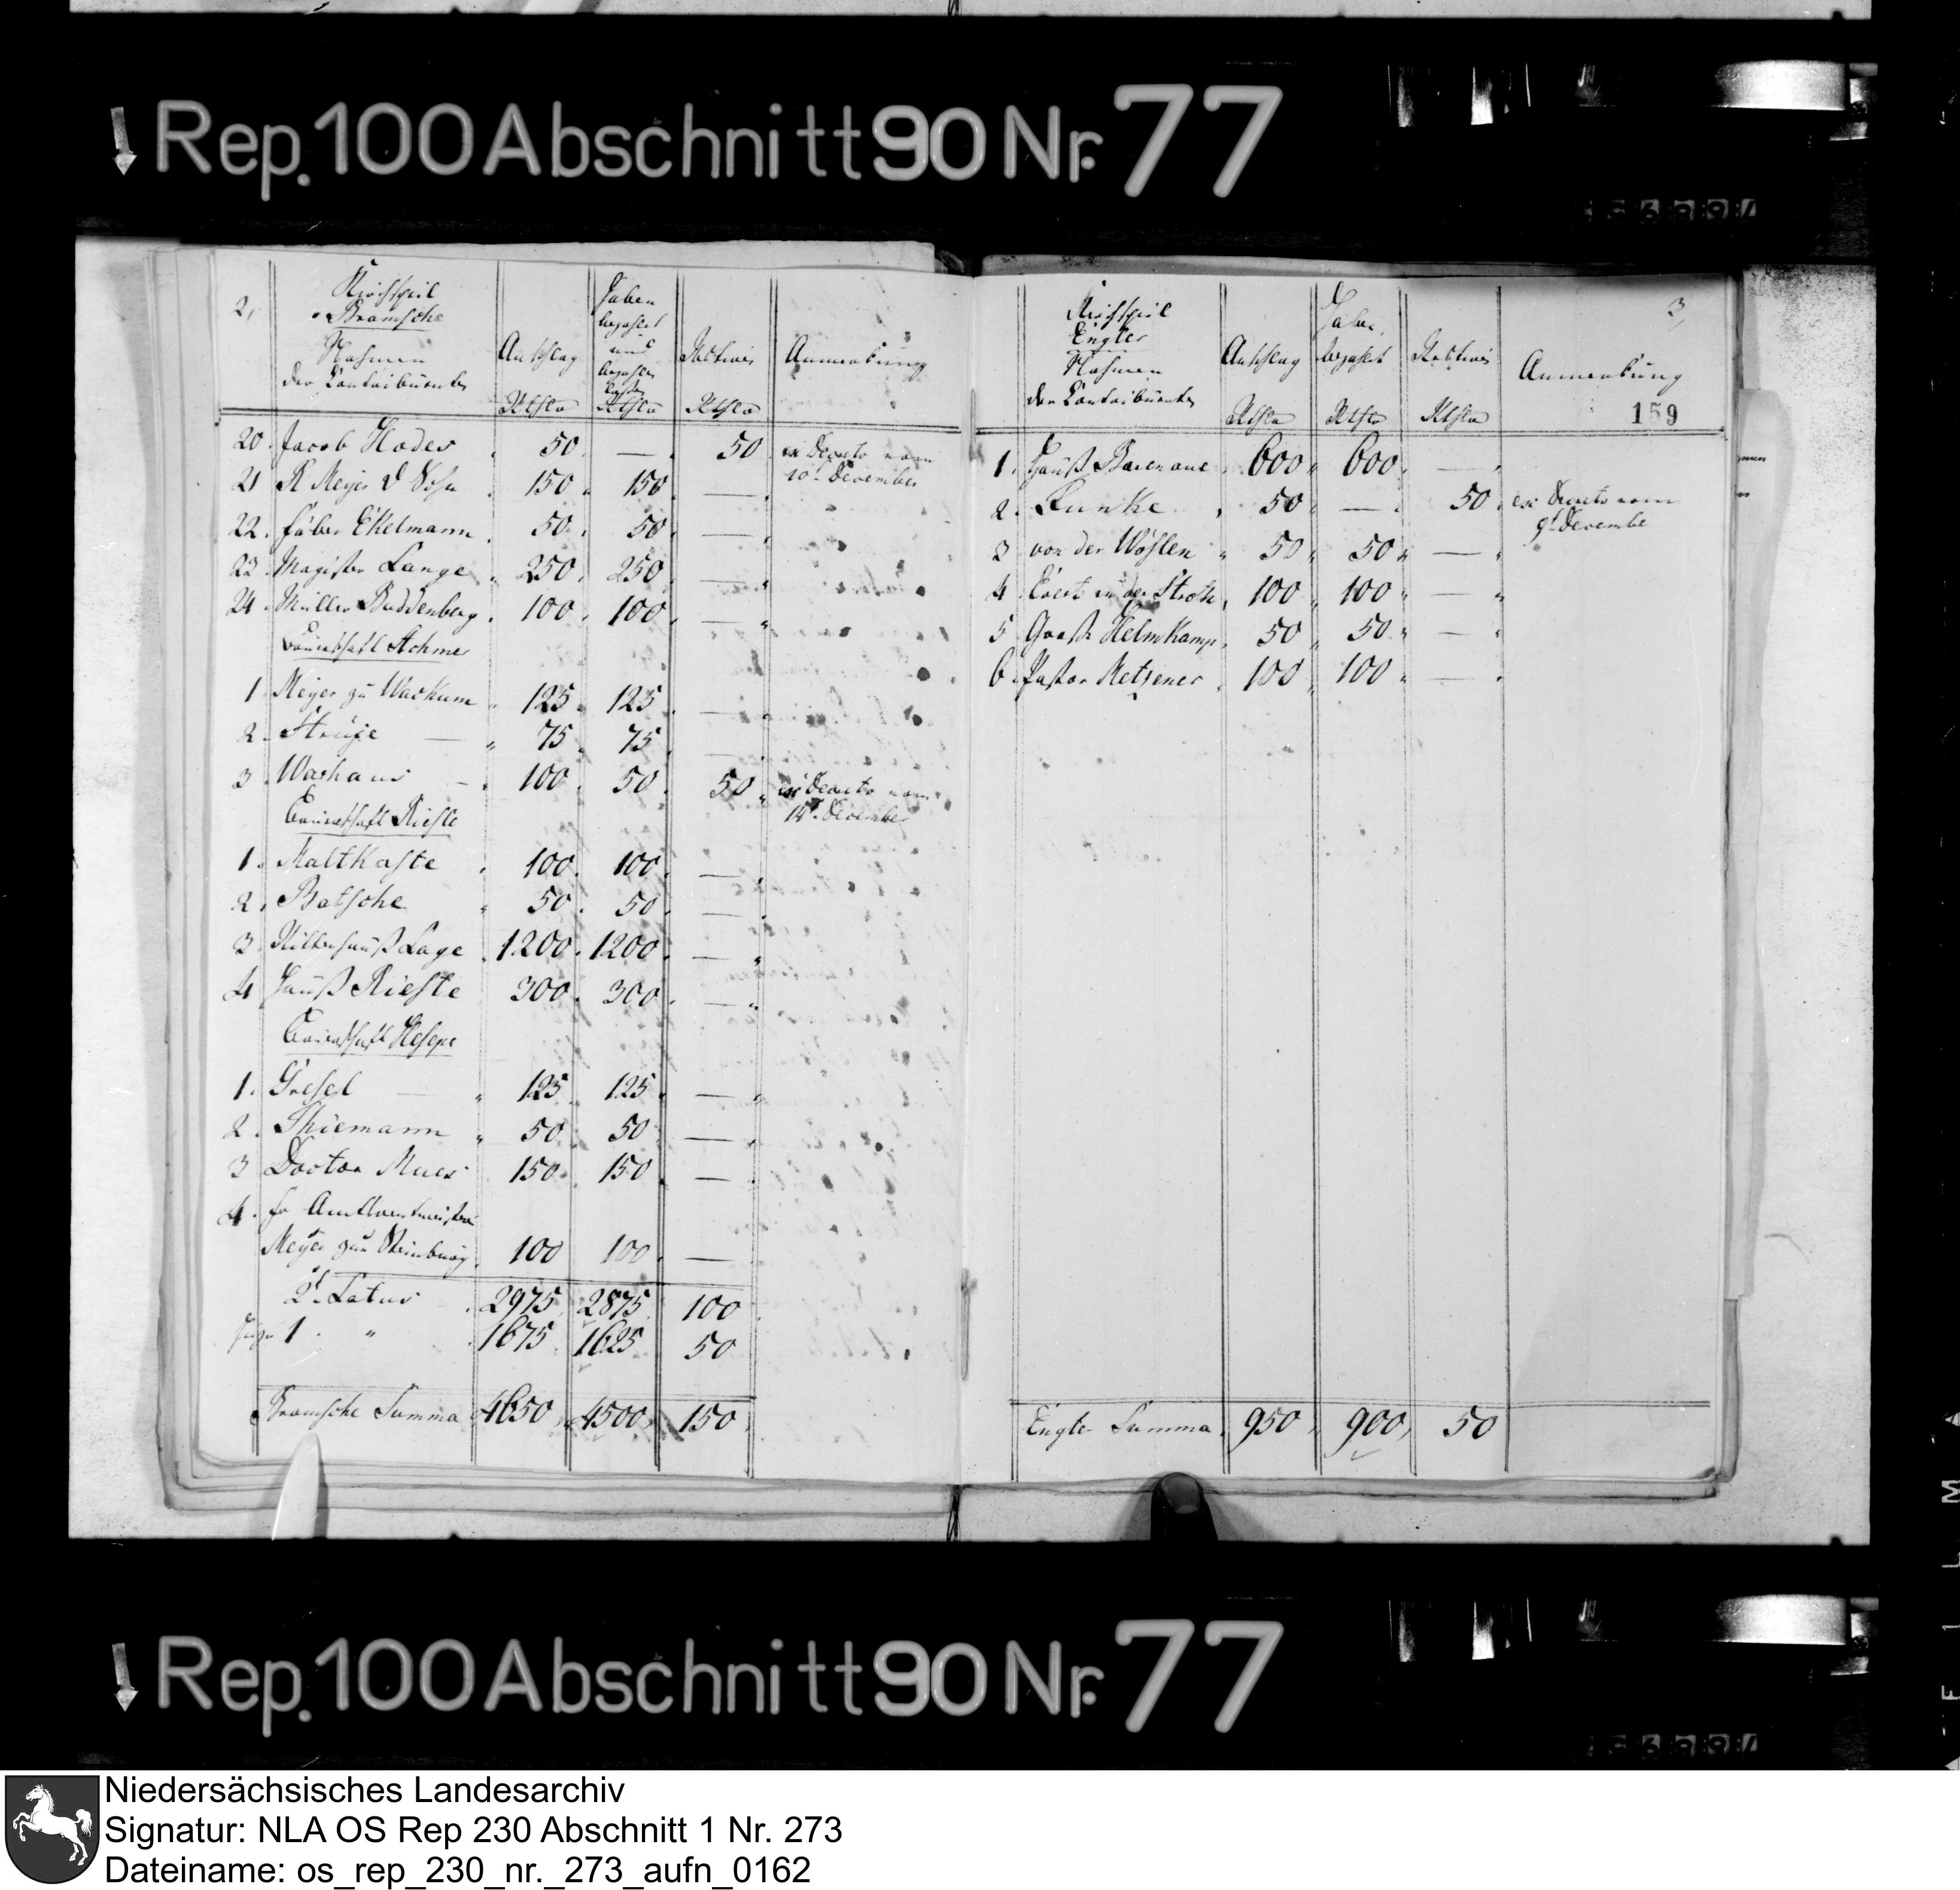 Rep. 100 Abschnitt 90 Nr. 77
2,
Kirchspil
Bramsche
Nahmen
der Contribuenten
Anschlag
Rthlr
haben
bezahlt
und
bezahlen
Rthlr
Restiren
Rthlr
Anmerkung
20. Jacob Hodes 50 — 50 ex Decreto vom
10t December
21 R Meyer & Sohn 150 150 —
22. Färber Ekelmann 50 50 —
23. Magister Lange 250 250 —
24. Müller Buddenberg 100 100 —
Bauerschaft Achmer
1 Meyer zu Wackum 125 125 —
2. Strüje — 75 75 —
3. Wachaus 100 50 50 ex Decreto vom
14t December
Bauerschaft Rieste
1. Maltkaste 100 100 —
2. Batsche 50 50 —
3. Ritterhauß Lage 1200 1200 —
4 Hauß Rieste 300 300 —
Bauerschaft Hesepe
1. Gresel — 125 125 —
2. Thiemann 50 50 —
3 Doctor Mues 150 150 —
4. Fr Amtsrentmeister
Meyer zur Steinburg 100 100 —
2t Latus 2975 2875 100
1. " 1675 1625 50
Bramsche Summa 4650 4500 150
3,
Kirchspil
Engter
Nahmen
der Contribuenten
Anschlag
Rthlr
Haben
bezahlt
Rthlr
Restiren
Rthlr
Anmerkung
159
1. Hauß Barenaue 600 600 —
2. Funke 50 — 50 ex Decreto vom
9t Decembe
3 von der Wöhlen 50 50 —
4 Evert in der Stroth 100 100 —
5 Große Helmkamp 50 50 —
6. Pastor Metzener 100 100 —
Engter Summa 950 900 50
Rep. 100 Abschnitt 90 Nr. 77
Niedersächsisches Landesarchiv
Signatur: NLA OS Rep 230 Abschnitt 1 Nr. 273
Dateiname: os_rep_230_nr._273_aufn_0162